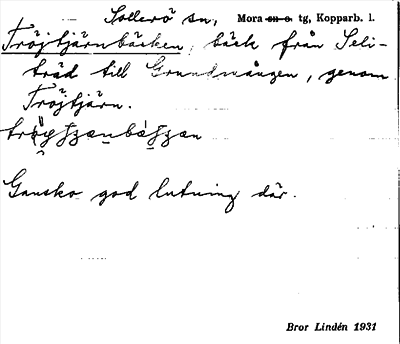 Sollerö sn, Mora sn o. tg, Kopparb. l.
Tröjtjärnbäcken, bäck från Seli-
träd till Grundvången, genom
Tröjtjärn.
Ganska god lutning där.
Bror Lindén 1931